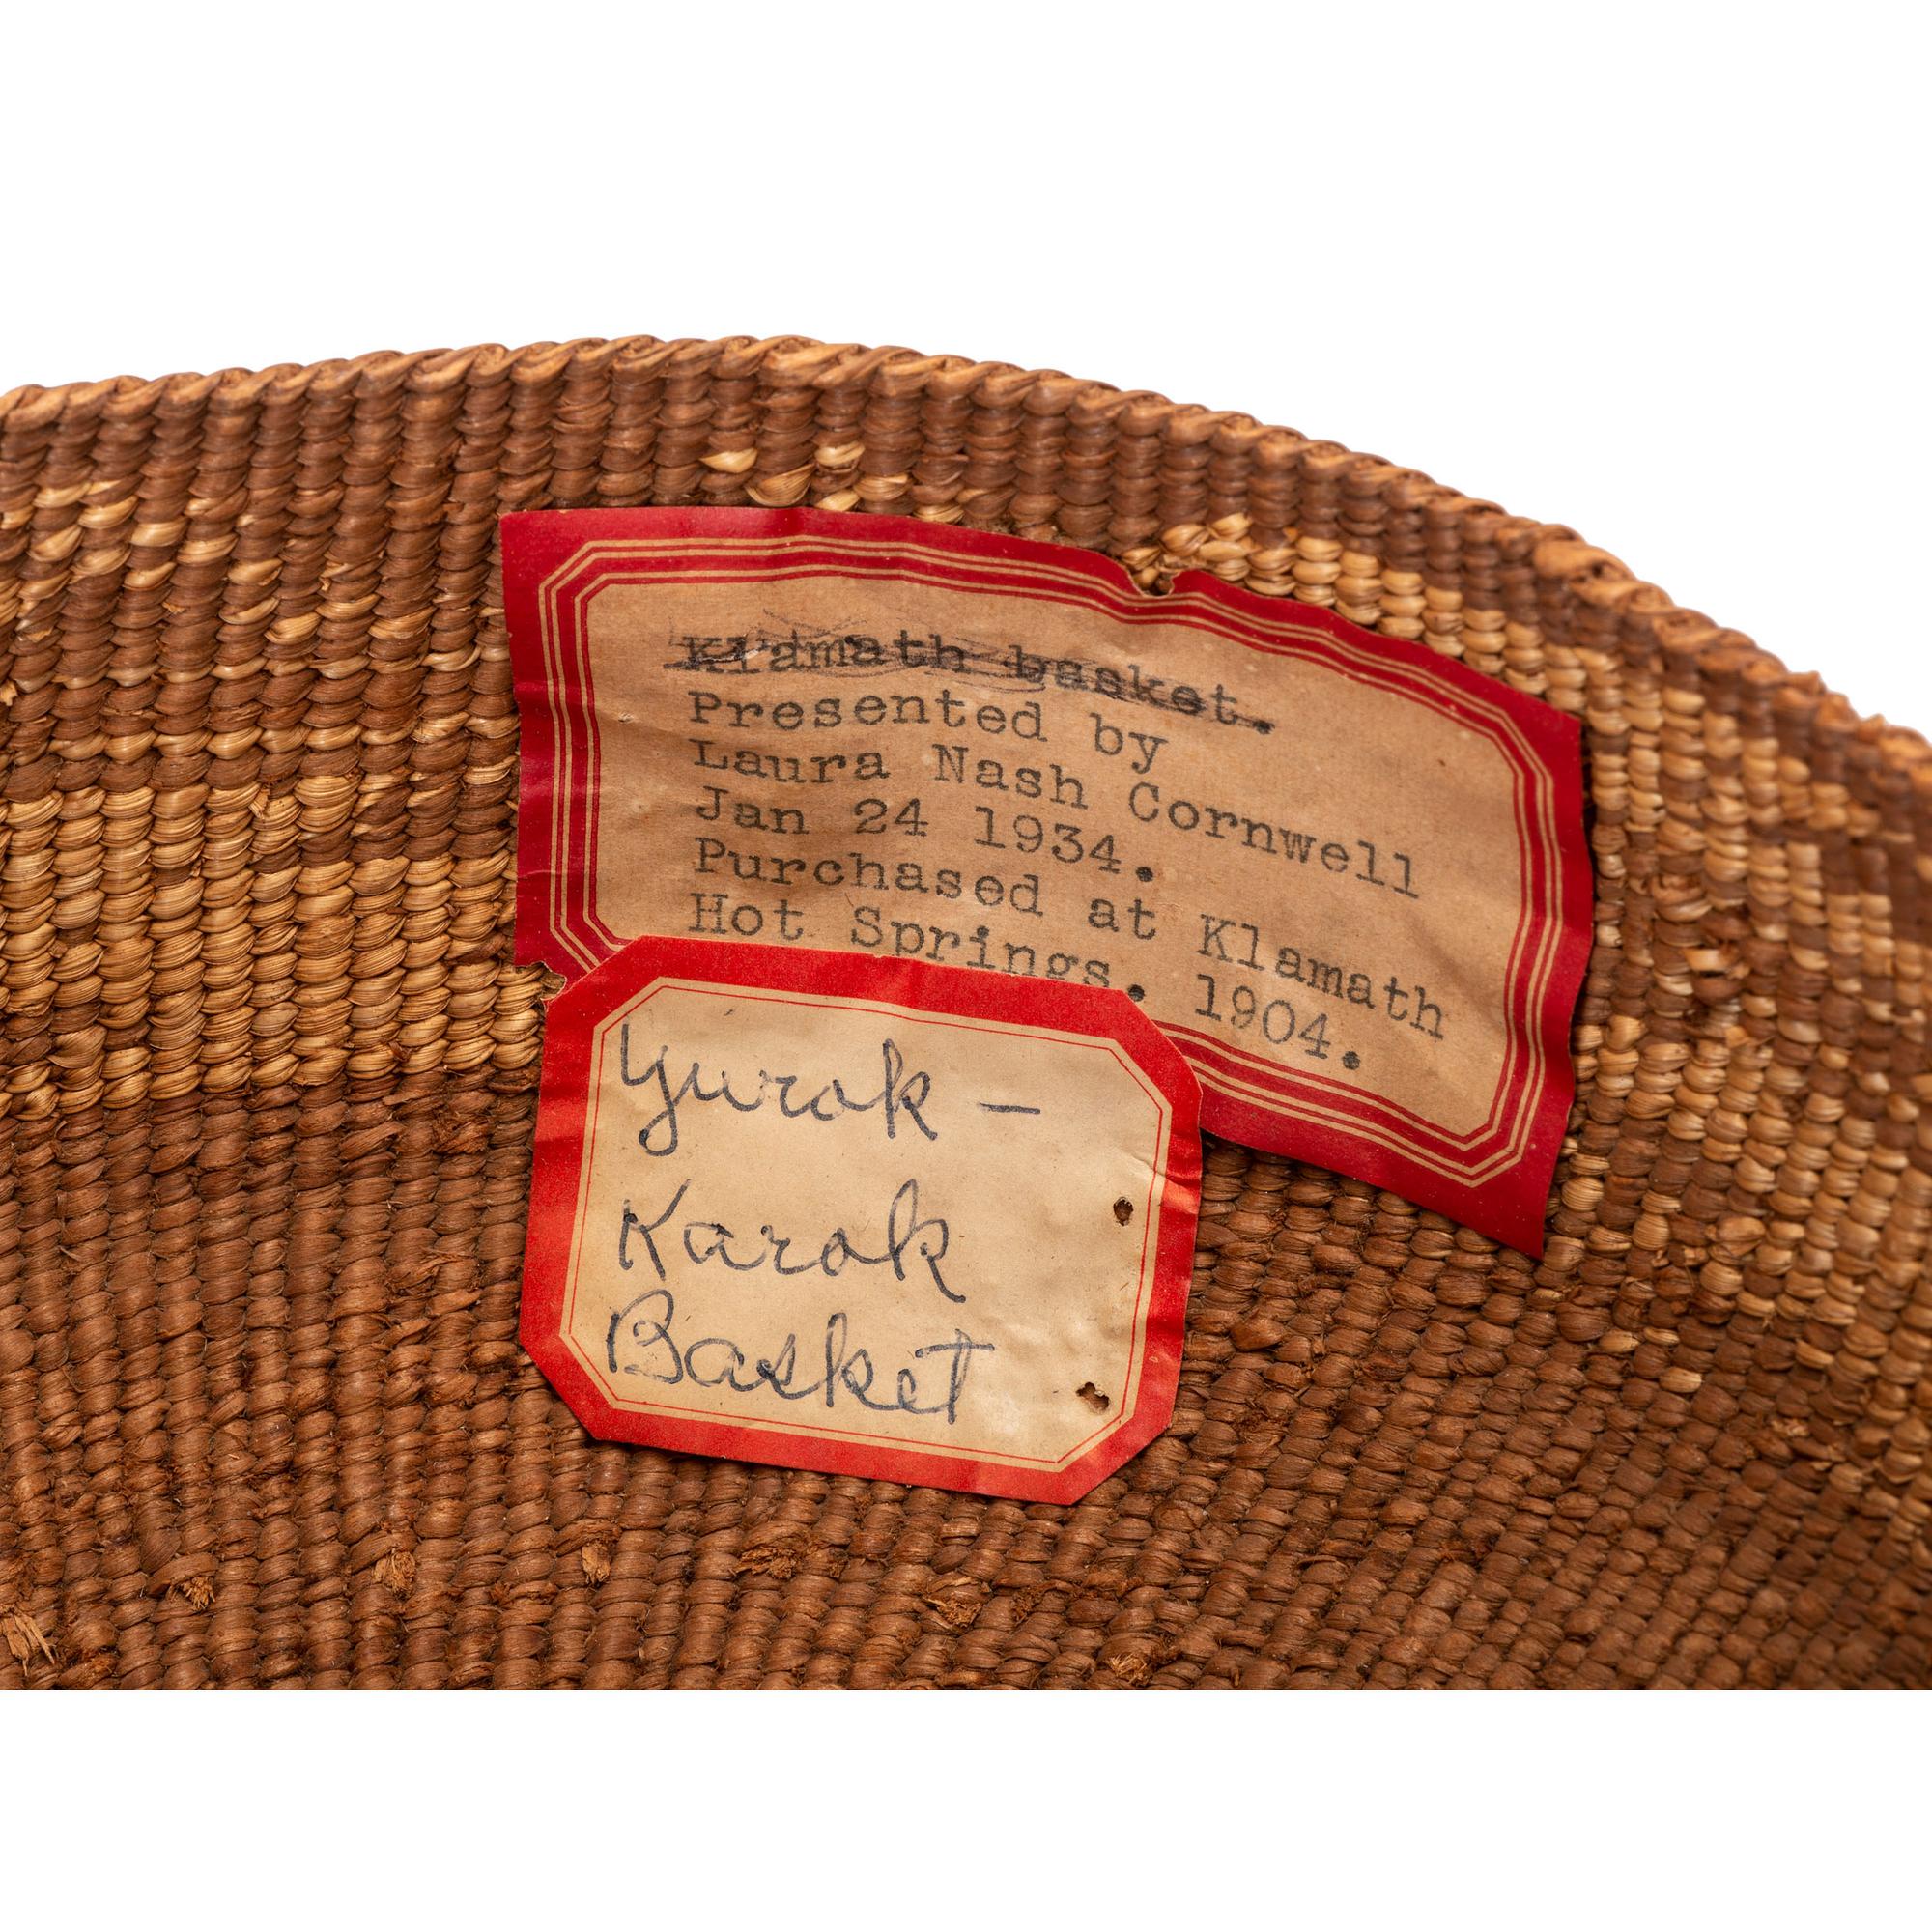 Klamath basket.
Presented by
Laura Nash Cornwell
Jan 24 1934.
Purchased at Klamath
Hot Springs. 1904.
Yurok -
Karok
Basket